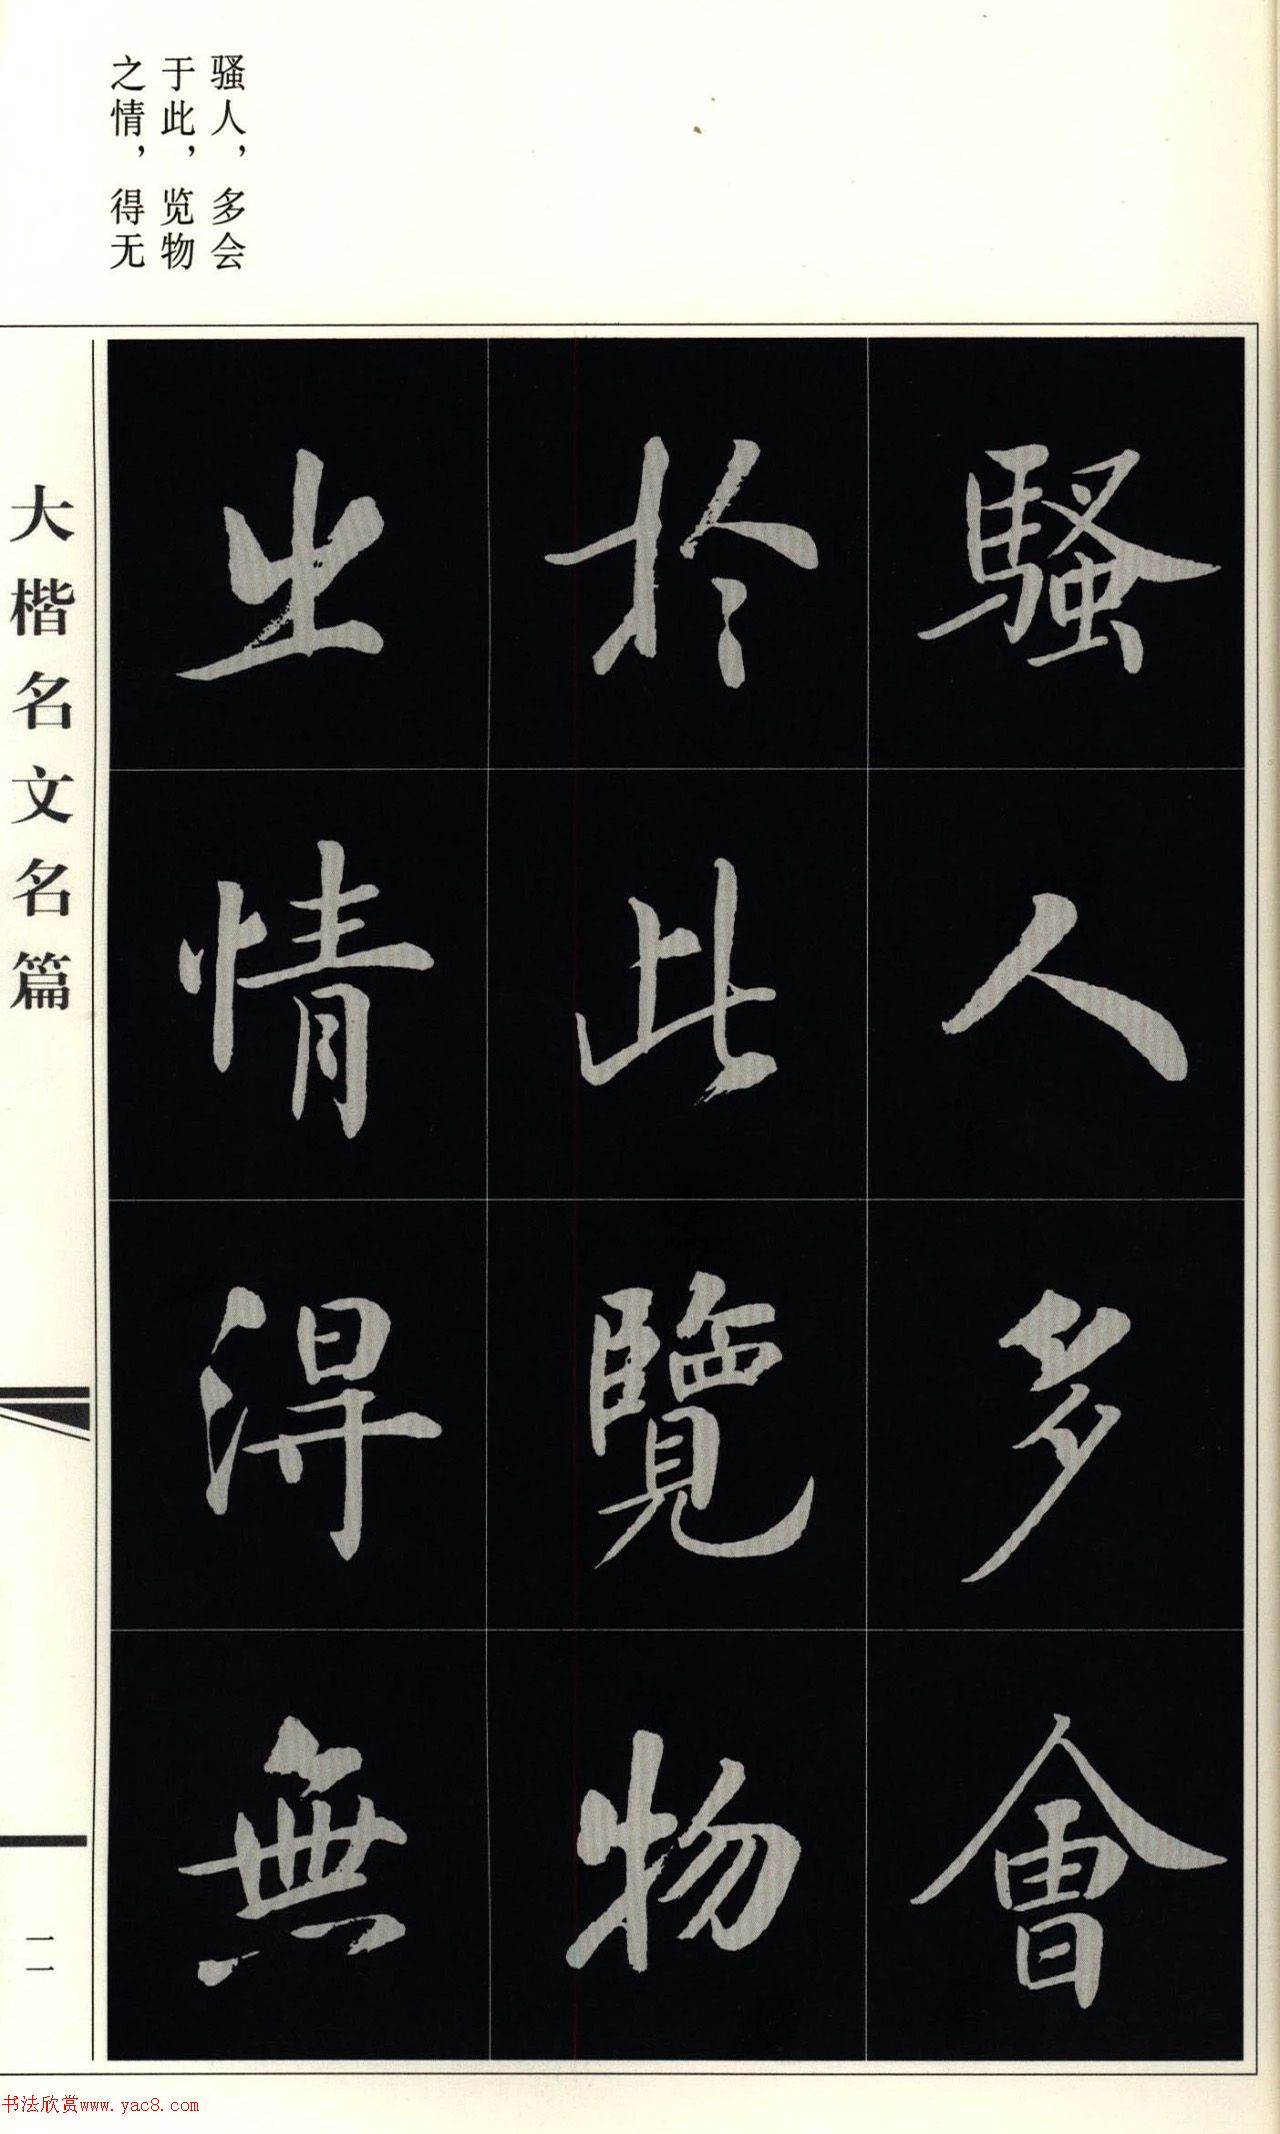 骚人，多会
于此，览物
之情，得无
騷人多會
於此覽物
之情得無
大楷名文名篇
一一
书法欣赏www.yac8.com